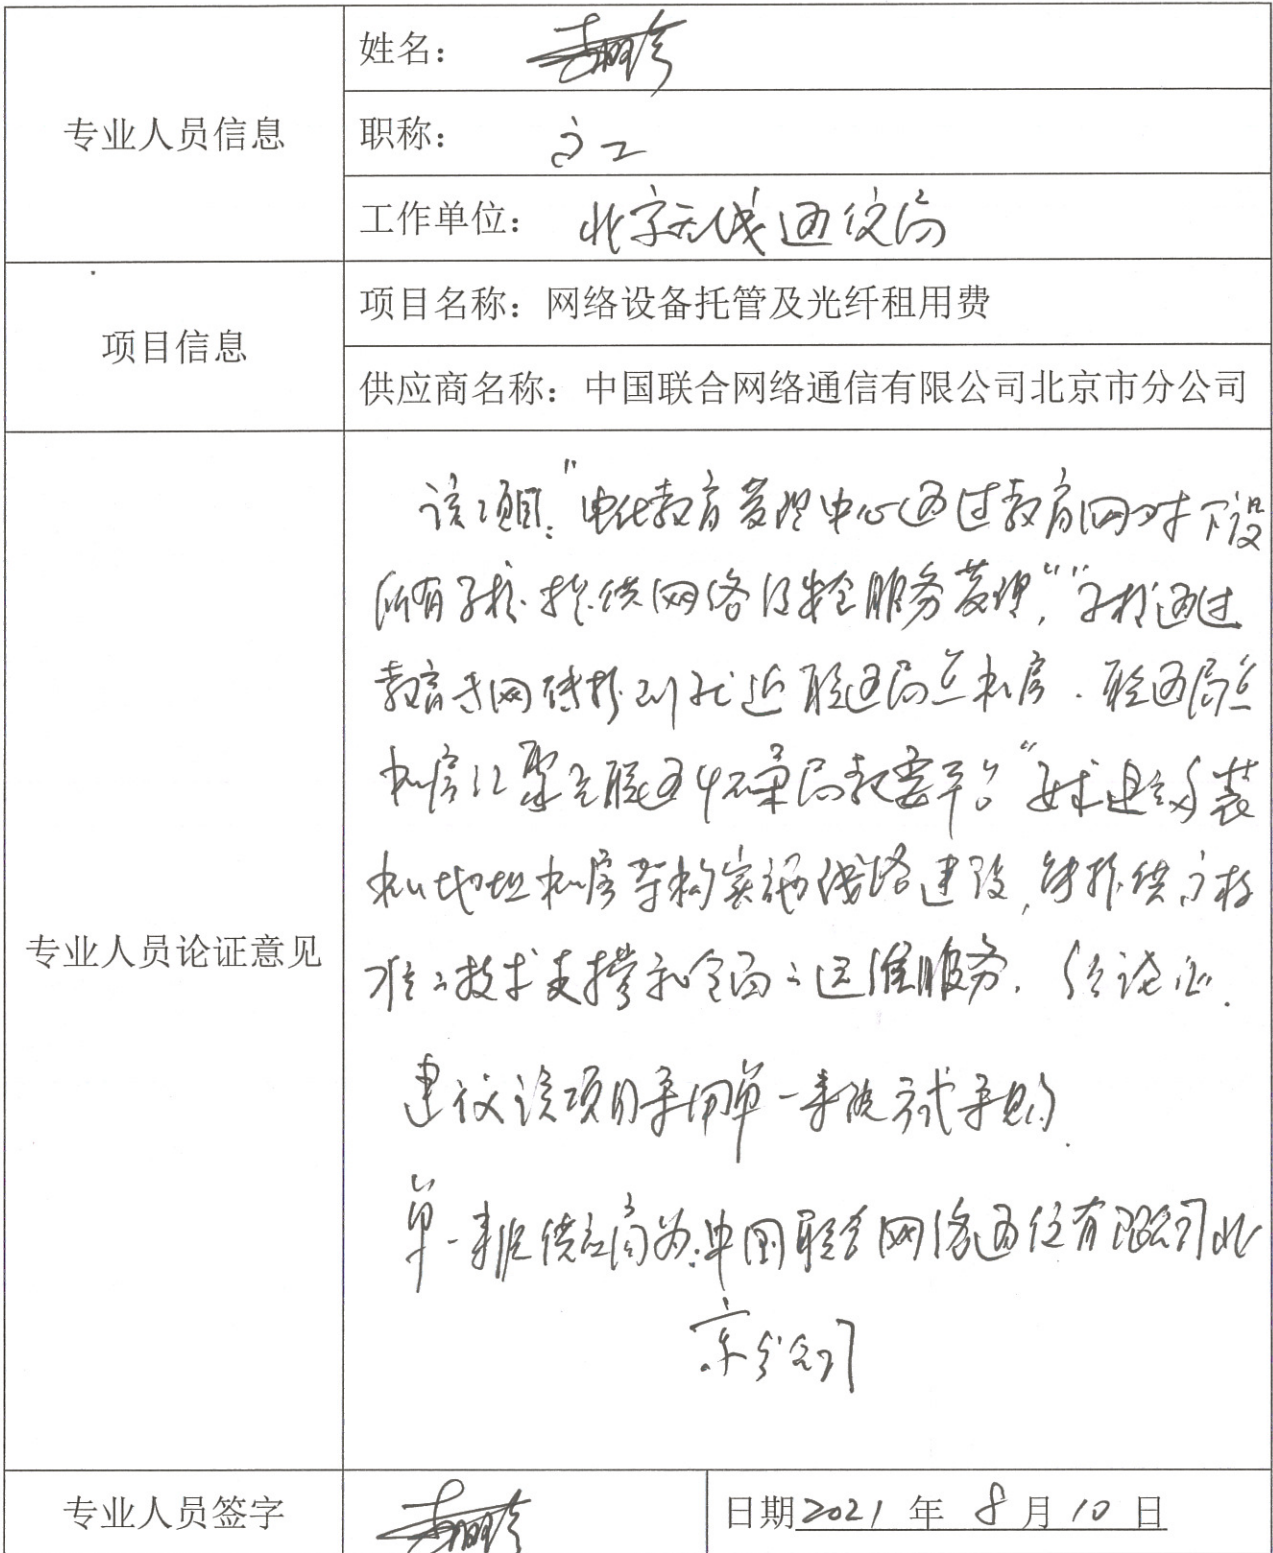 专业人员信息
姓名：
职称：高工
工作单位：北京无线通信局
项目信息
项目名称：网络设备托管及光纤租用费
供应商名称：中国联合网络通信有限公司北京市分公司
专业人员论证意见
该项目："电化教育管理中心通过教育网对下设
所有学校提供网络及安全服务管理，""学校通过
教育专网转接到就近联通局点机房．联通局点
机房汇聚至联通局教委平台"要求
机地址机房架构实施线路建设，能提供高标
准的技术支撑和全面的运维服务．经论证．
建议该项目采用单一来源方式采购．
单一来源供应商为：中国联合网络通信有限公司北
京分公司
专业人员签字
日期2021年8月10日